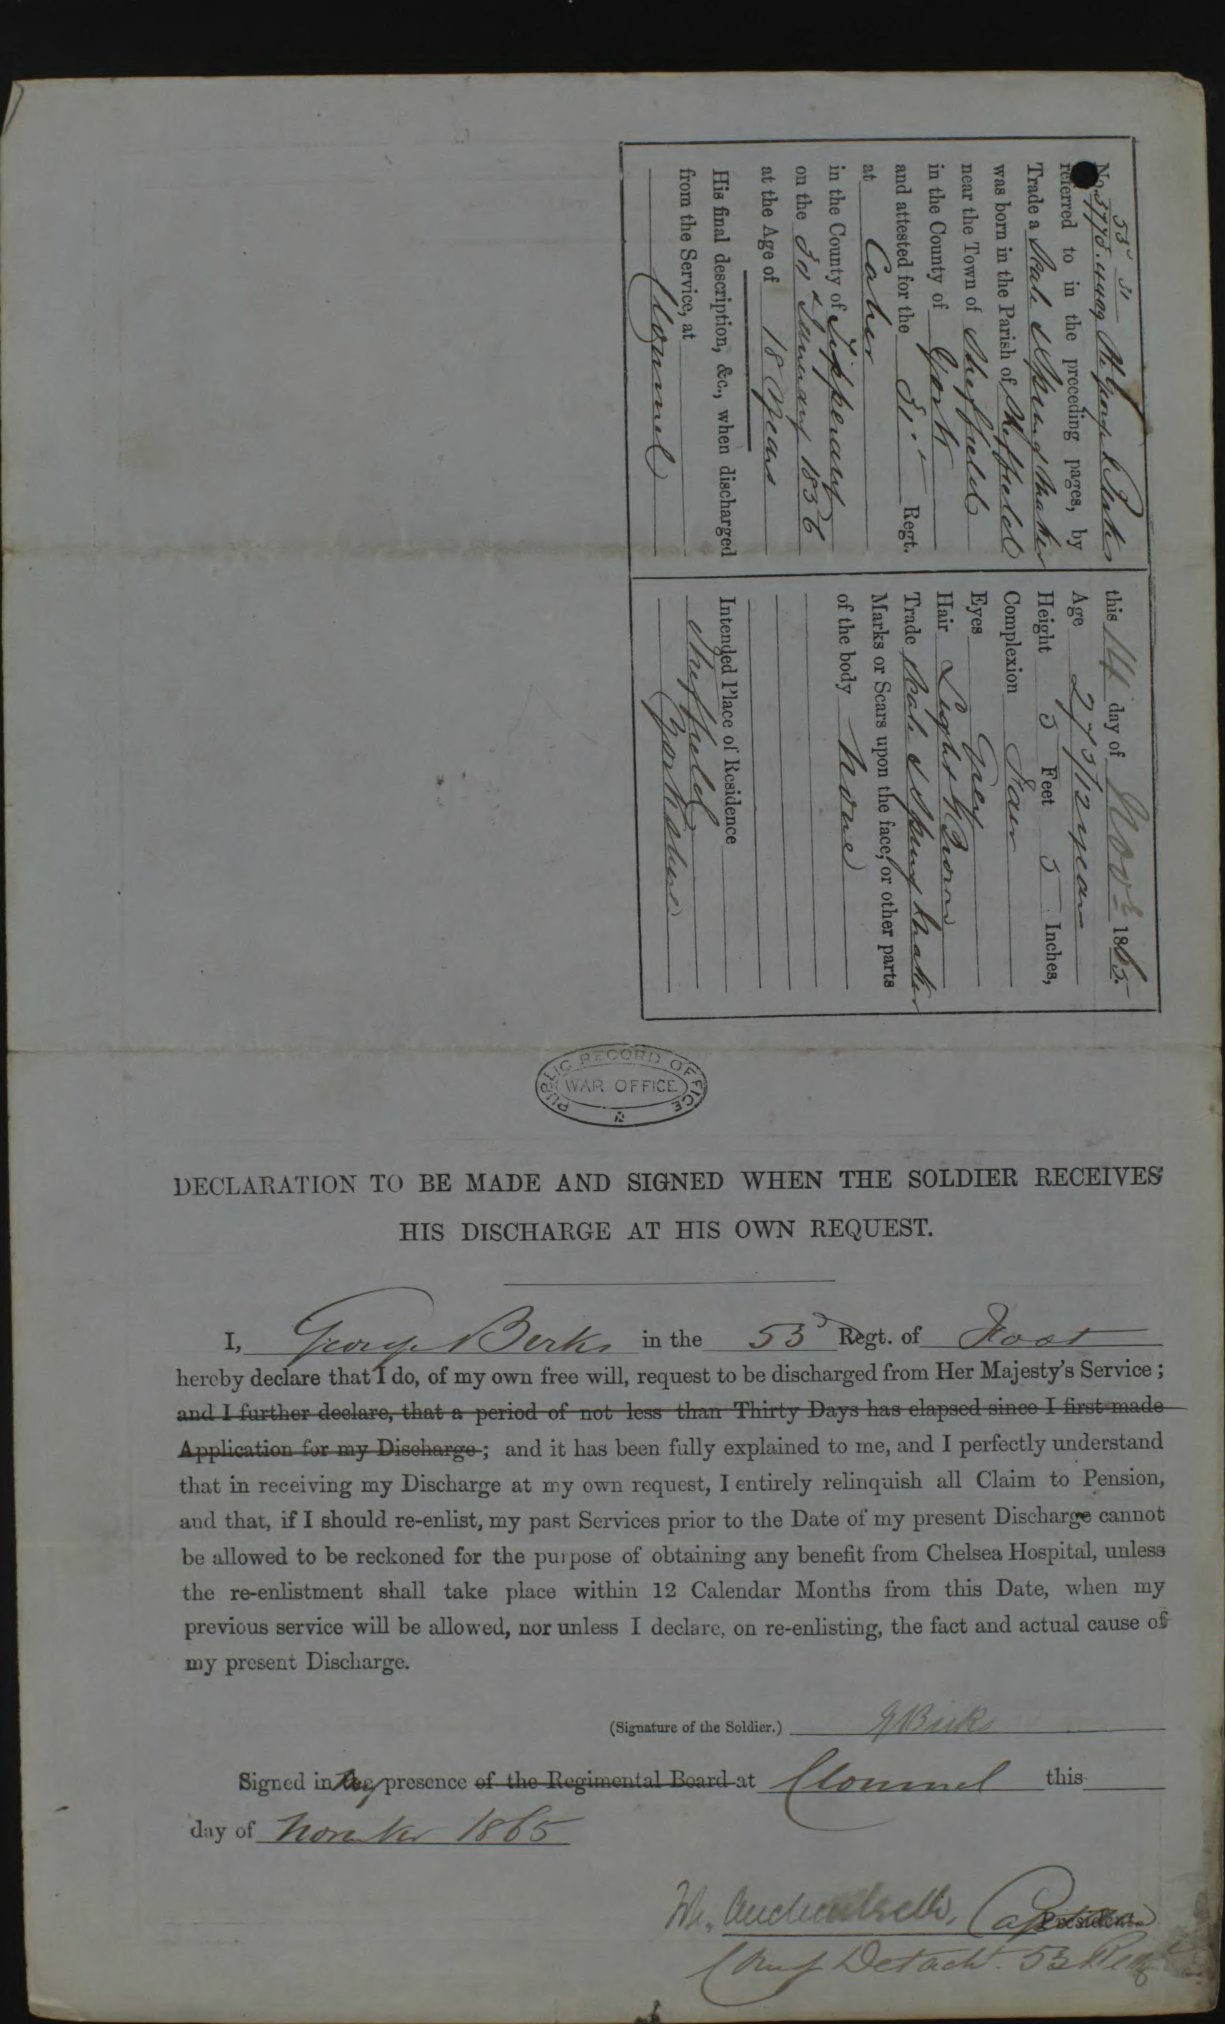 53 31
No. 3775. George Berks
referred to in the preceding pages, by
Trade a Scale & Spring Maker
was born in the Parish of Sheffield
near the Town of Sheffield
in the County of York
and attested for the 31st Regt.
at Caher
in the County of Tipperary
on the January 1856
at the Age of 18 Years
His final description, &c., when discharged
from the Service, at
Clonmel
this 14 day of Novr 1865.
Age 27 3/12 years
Height 5 Feet 5 Inches,
Complexion Fair
Eyes Grey
Hair Light Brown
Trade Scale & Spring Maker
Marks or Scars upon the face, or other parts
of the body None
Intended Place of Residence
Sheffield
Yorkshire
PUBLIC RECORD OFFICE
WAR OFFICE
DECLARATION TO BE MADE AND SIGNED WHEN THE SOLDIER RECEIVES
HIS DISCHARGE AT HIS OWN REQUEST.
I, George Berks in the 53d Regt. of Foot
hereby declare that I do, of my own free will, request to be discharged from Her Majesty's Service ;
and I further declare, that a period of not less than Thirty Days has elapsed since I first made
Application for my Discharge ; and it has been fully explained to me, and I perfectly understand
that in receiving my Discharge at my own request, I entirely relinquish all Claim to Pension,
and that, if I should re-enlist, my past Services prior to the Date of my present Discharge cannot
be allowed to be reckoned for the purpose of obtaining any benefit from Chelsea Hospital, unless
the re-enlistment shall take place within 12 Calendar Months from this Date, when my
previous service will be allowed, nor unless I declare, on re-enlisting, the fact and actual cause of
my present Discharge.
(Signature of the Soldier.) G Birks
Signed in my presence of the Regimental Board at Clonmel this
day of November 1865
Captain President
Comg Detacht. 53 Regt